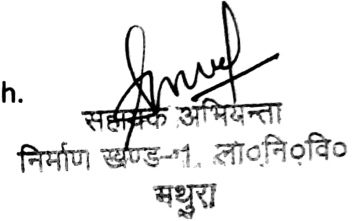 h.
सहायक अभियन्ता
निर्माण खण्ड-1, लो०नि०वि०
मथुरा